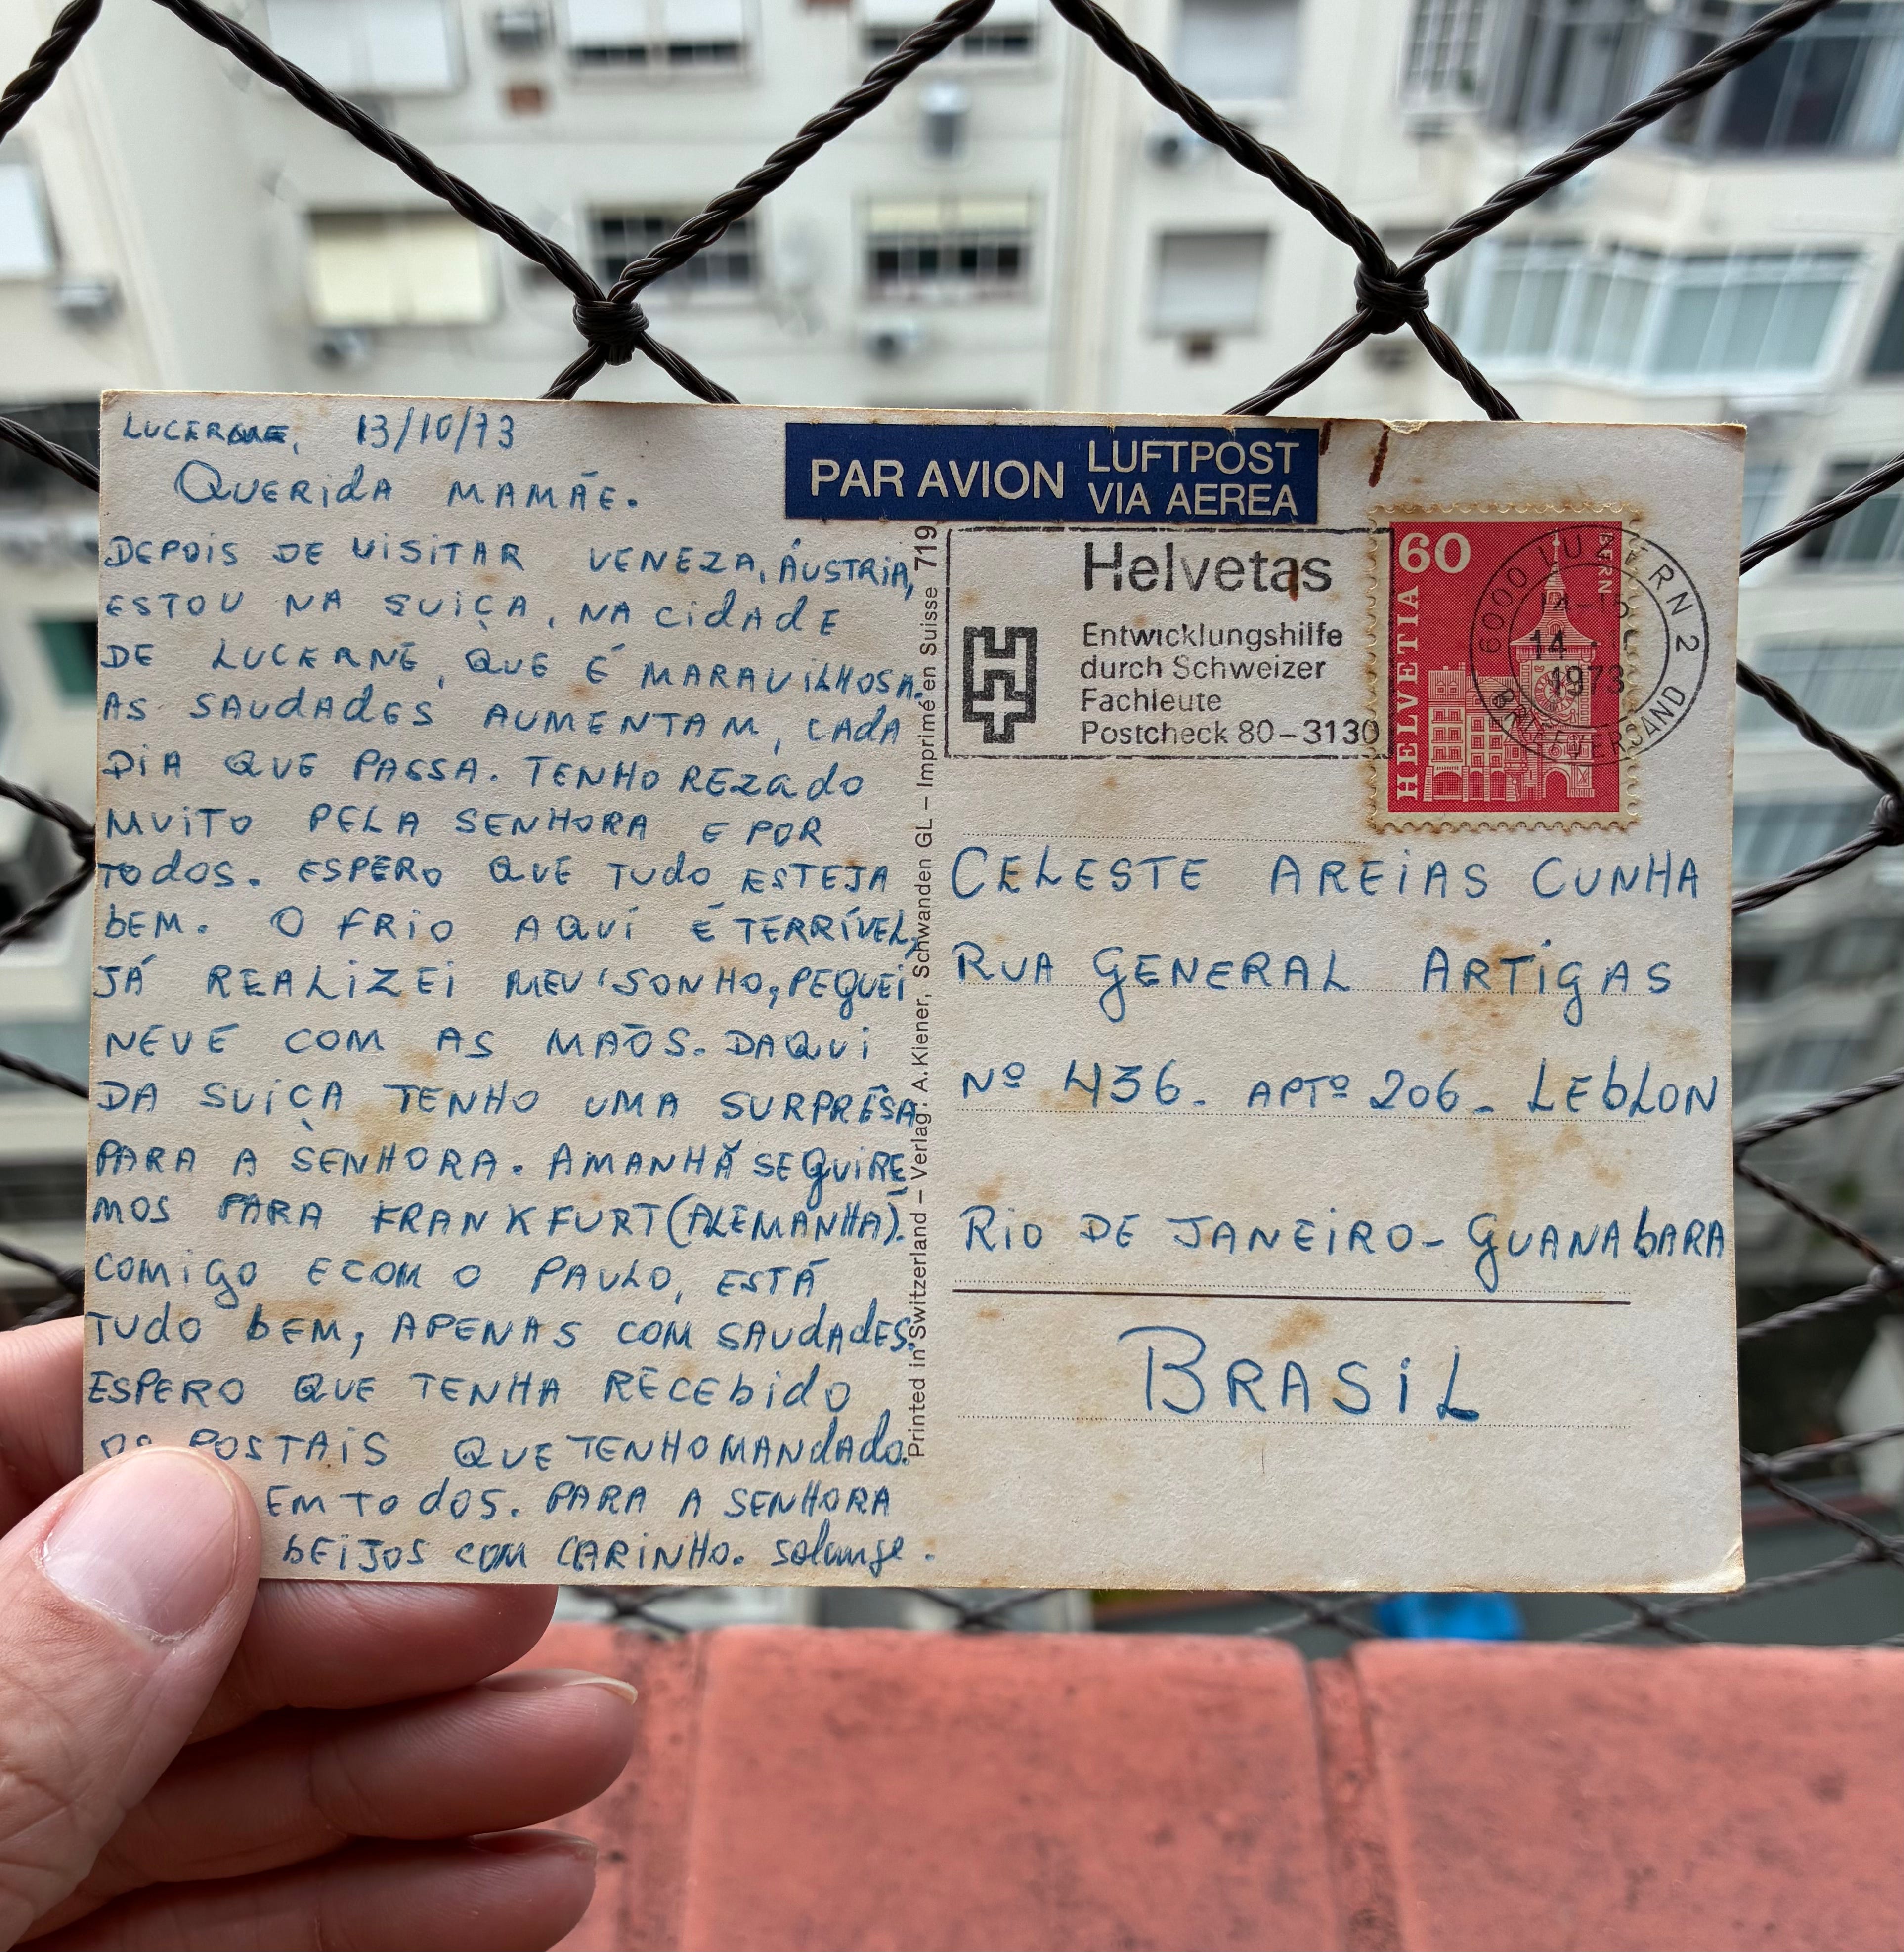 LUCERNE, 13/10/73
QUERIDA MAMÃE.
DEPOIS DE VISITAR VENEZA, ÁUSTRIA,
ESTOU NA SUIÇA, NA CIDADE
DE LUCERNE, QUE É MARAVILHOSA.
AS SAUDADES AUMENTAM, CADA
DIA QUE PASSA. TENHO REZADO
MUITO PELA SENHORA E POR
TODOS. ESPERO QUE TUDO ESTEJA
BEM. O FRIO AQUI É TERRÍVEL,
JÁ REALIZEI MEU SONHO, PEGUEI
NEVE COM AS MÃOS. DAQUI
DA SUIÇA TENHO UMA SURPRÊSA
PARA A SENHORA. AMANHÃ SEGUIRE
MOS PARA FRANKFURT (ALEMANHA).
COMIGO E COM O PAULO, ESTÁ
TUDO BEM, APENAS COM SAUDADES.
ESPERO QUE TENHA RECEBIDO
OS POSTAIS QUE TENHO MANDADO.
EM TODOS. PARA A SENHORA
BEIJOS COM CARINHO. Solange.
Printed in Switzerland – Verlag: A. Kiener, Schwanden GL – Imprimé en Suisse 719
PAR AVION
LUFTPOST
VIA AEREA
Helvetas
Entwicklungshilfe
durch Schweizer
Fachleute
Postcheck 80–3130
60
HELVETIA
BERN
6000 LUZERN 2
14
1973
BRIEFVERSAND
CELESTE AREIAS CUNHA
RUA GENERAL ARTIGAS
Nº 436. APTº 206 – LEBLON
RIO DE JANEIRO – GUANABARA
BRASIL